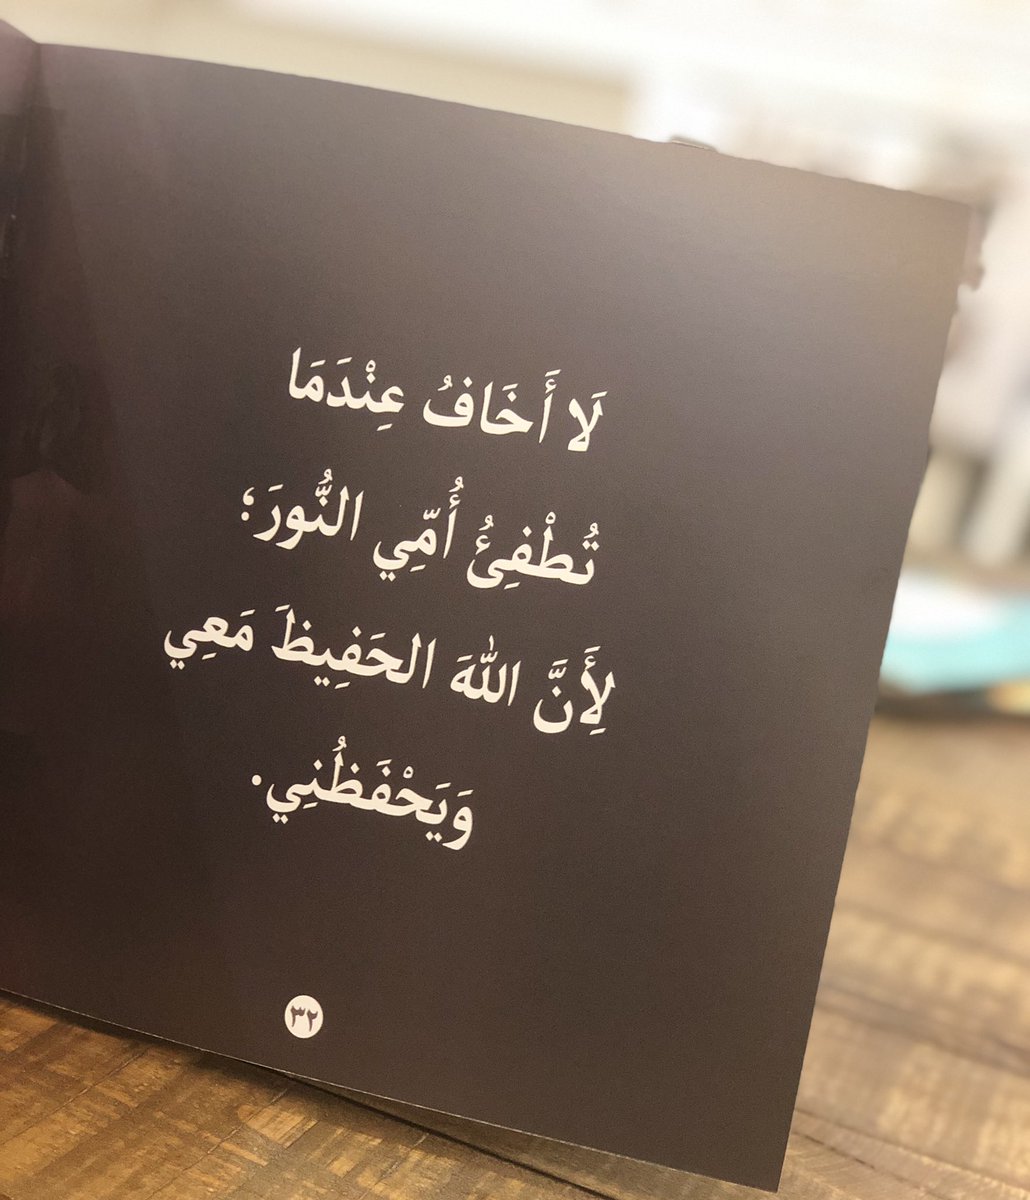 لَا أَخَافُ عِنْدَمَا
تُطْفِئُ أُمِّي النُّورَ؛
لِأَنَّ اللّٰهَ الحَفِيظَ مَعِي
وَيَحْفَظُنِي.
٣٢